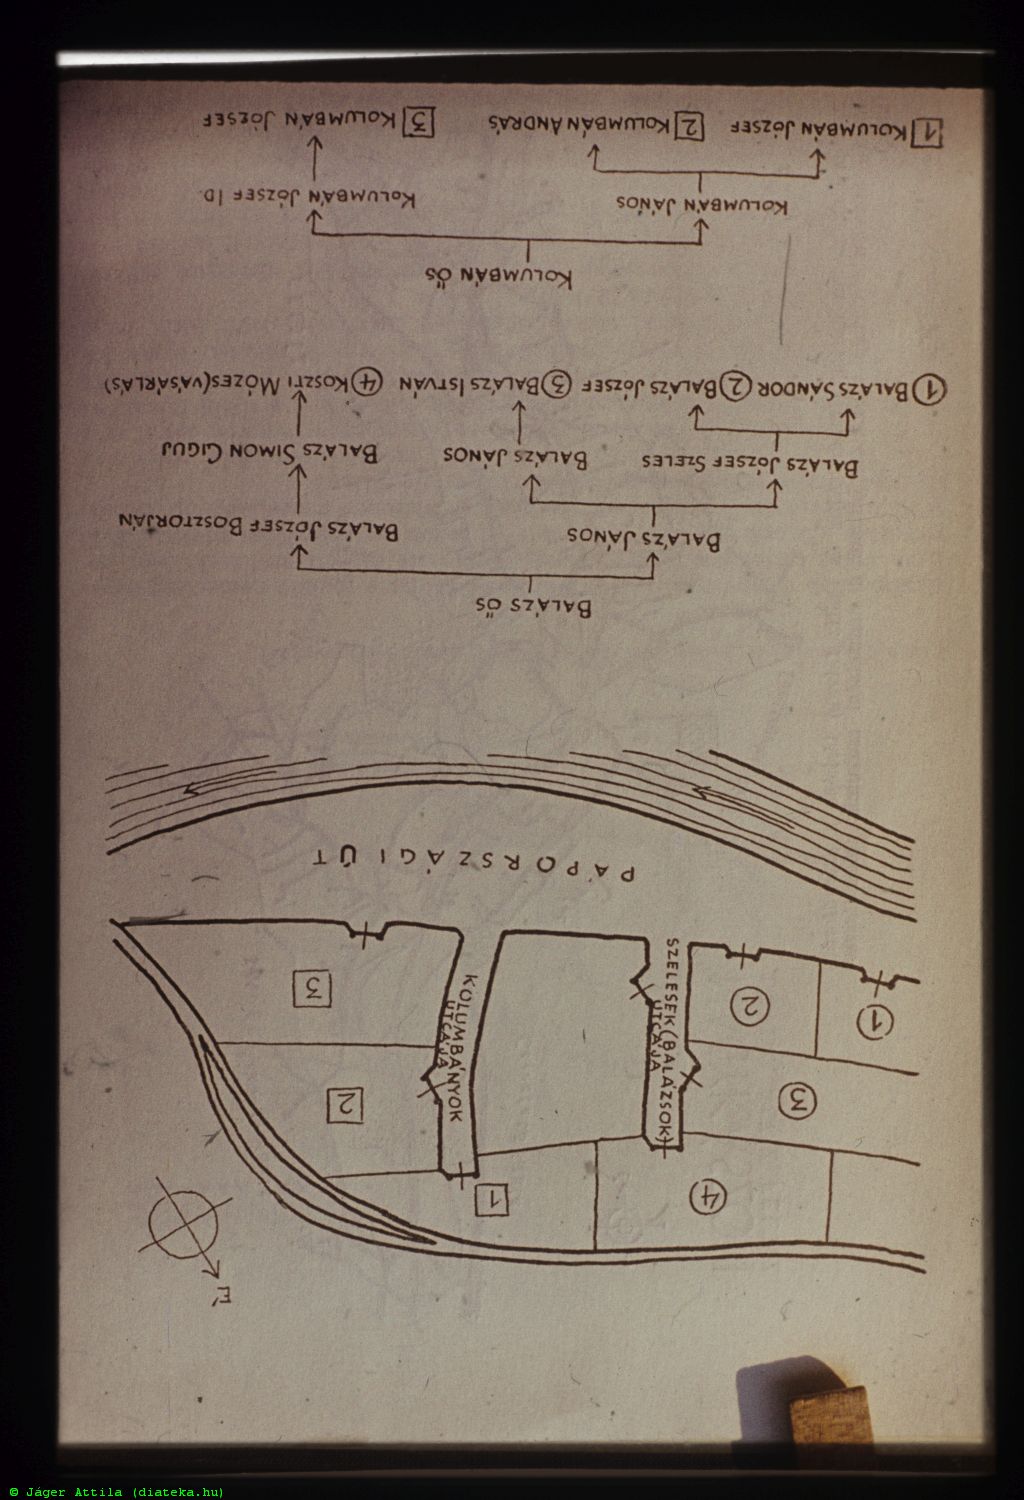 É
4
1
3
2
1
2
3
SZELESEK (BALÁZSOK)
UTCÁJA
KOLUMBÁNYOK
UTCÁJA
PÁPORSZÁGI ÚT
BALÁZS ŐS
BALÁZS JÁNOS
BALÁZS JÓZSEF BOSZTORJÁN
BALÁZS JÓZSEF SZELES
BALÁZS JÁNOS
BALÁZS SIMON CIGUJ
1 BALÁZS SÁNDOR
2 BALÁZS JÓZSEF
3 BALÁZS ISTVÁN
4 KOSZTI MÓZES (VÁSÁRLÁS)
KOLUMBÁN ŐS
KOLUMBÁN JÁNOS
KOLUMBÁN JÓZSEF ID.
1 KOLUMBÁN JÓZSEF
2 KOLUMBÁN ANDRÁS
3 KOLUMBÁN JÓZSEF
© Jáger Attila (diateka.hu)